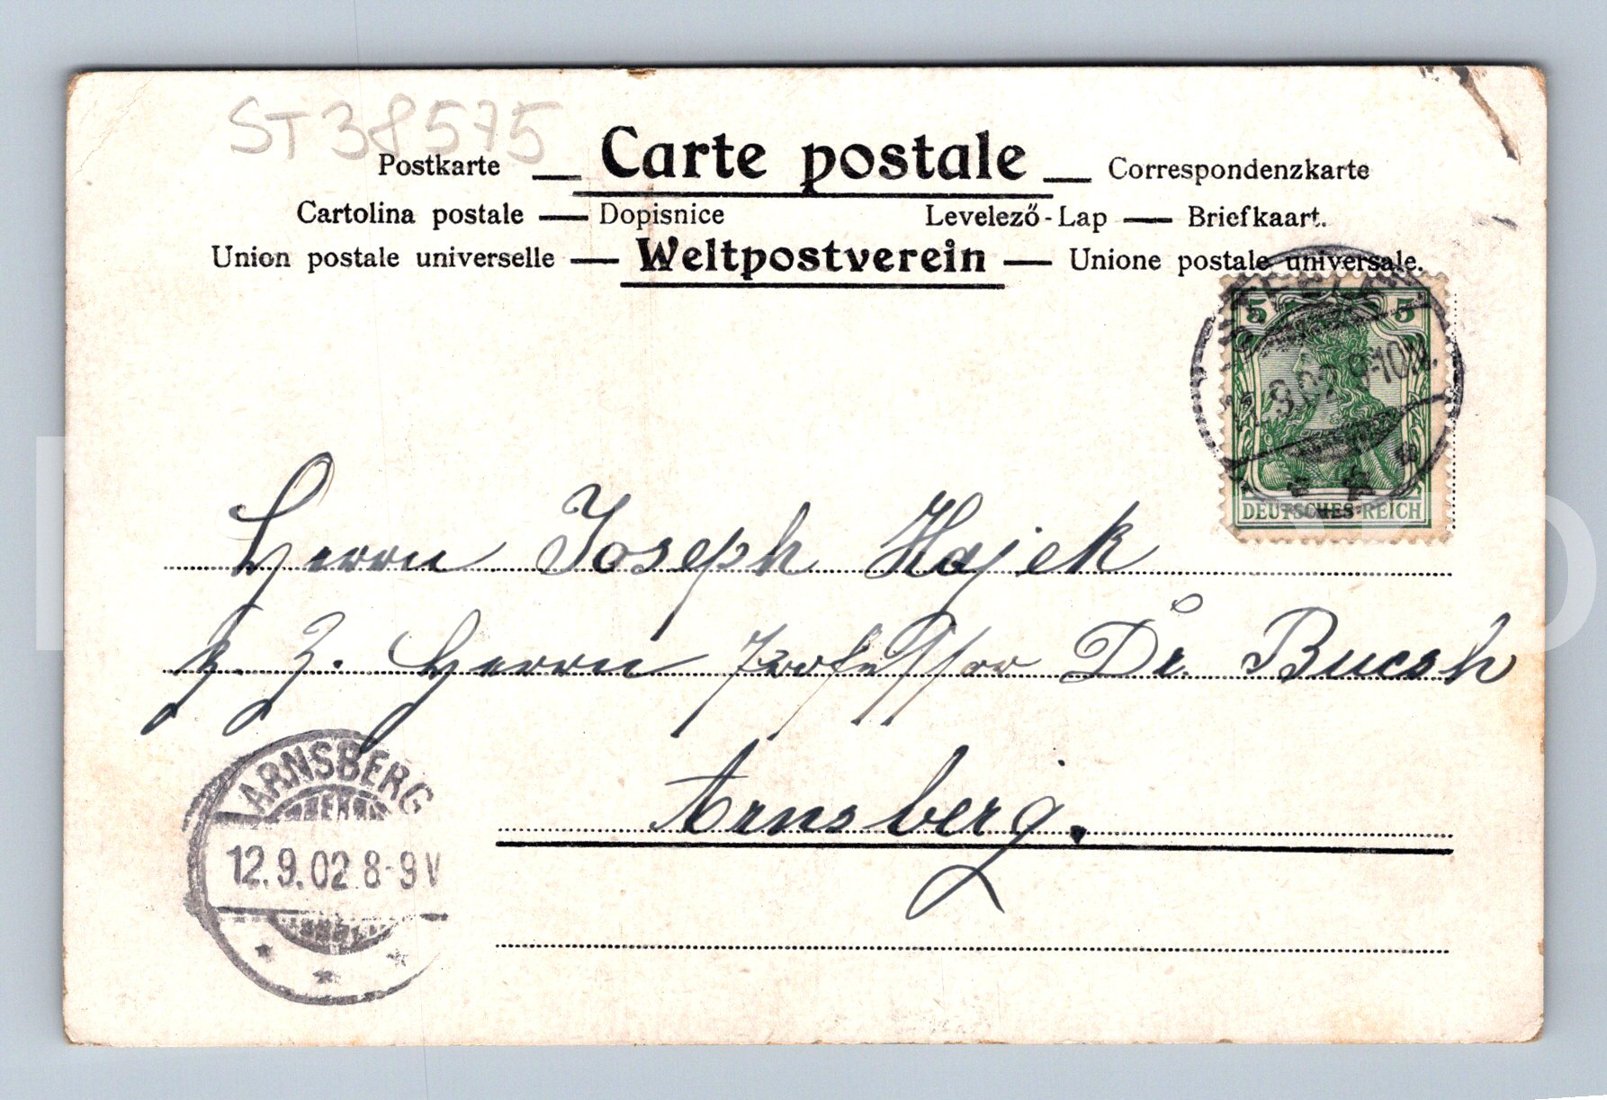 ST 38575
Postkarte — Carte postale — Correspondenzkarte
Cartolina postale — Dopisnice Levelező-Lap — Briefkaart.
Union postale universelle — Weltpostverein — Unione postale universale.
5 5
9.02 8-10
DEUTSCHES REICH
Herrn Joseph Hajek
z. Z. Herrn Professor Dr. Bucsh
Arnsberg.
ARNSBERG
12.9.02 8-9 V